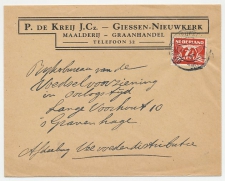 P. DE KREIJ J.CZ. – GIESSEN-NIEUWKERK
MAALDERIJ – GRAANHANDEL
TELEFOON 12
NEDERLAND
Rijksbureau van de
Voedselvoorziening
in oorlogstijd
Lange Voorhout 10
's Gravenhage
Afdeeling Veevoederdistributie